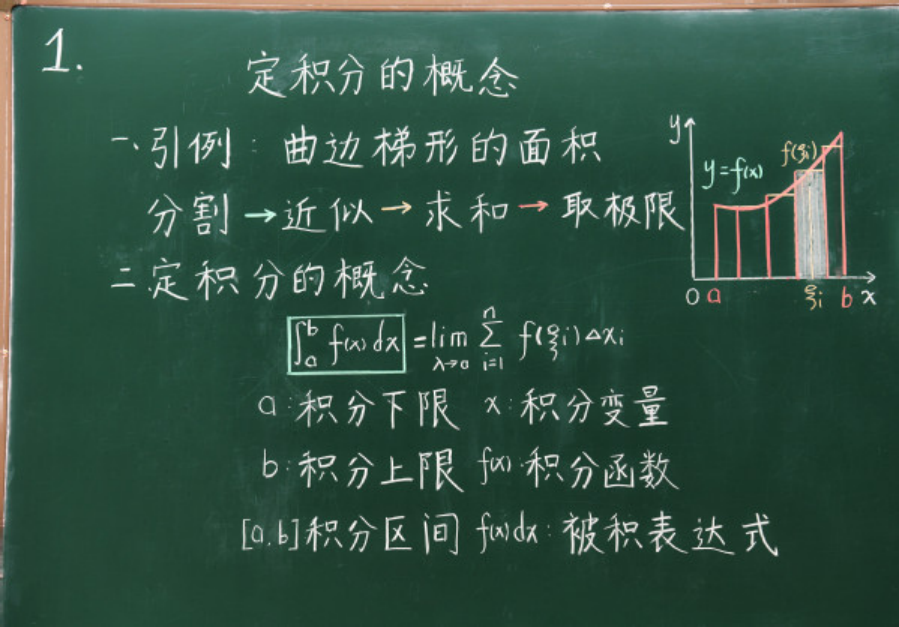 1.
定积分的概念
一、引例：曲边梯形的面积
分割→近似→求和→取极限
二.定积分的概念
∫_a^b f(x)dx = lim_{λ→0} ∑_{i=1}^{n} f(ξi)Δxi
a:积分下限 x:积分变量
b:积分上限 f(x):积分函数
[a.b]积分区间 f(x)dx:被积表达式
y
f(ξi)
y=f(x)
0 a ξi b x